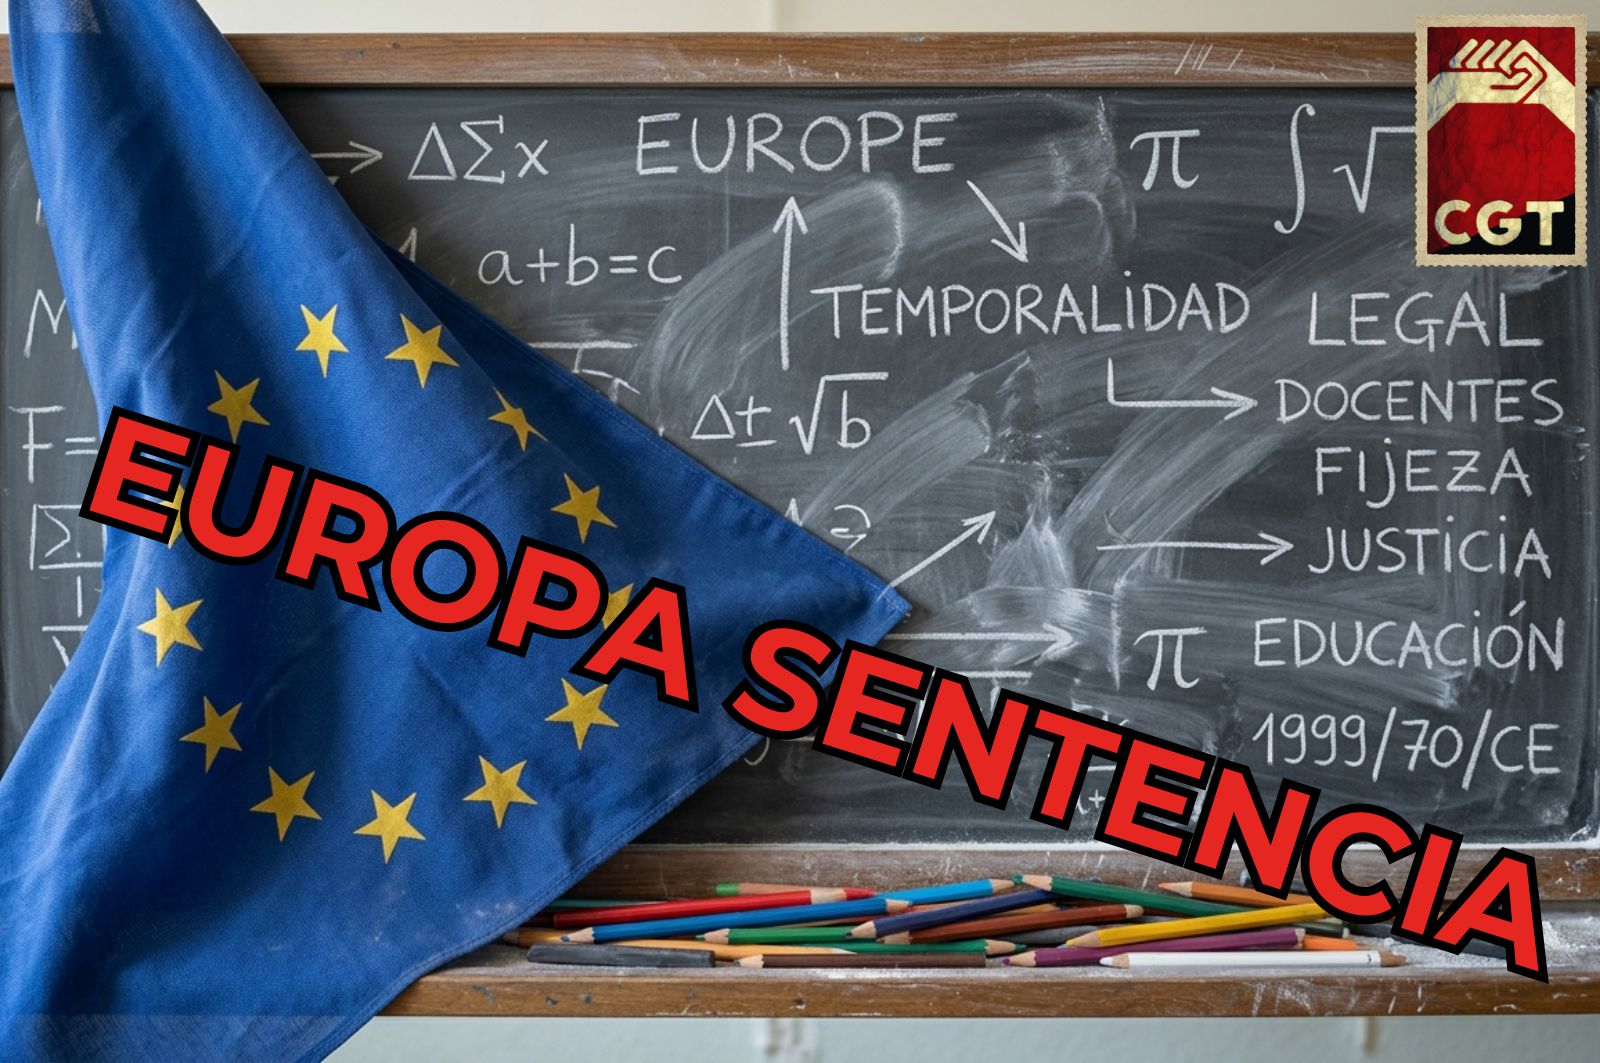 ΔΣx
EUROPE
π
∫√
CGT
a+b=c
TEMPORALiDAD
LEGAL
DOCENTES
Δ± √b
FIJEZA
F=
JUSTiCiA
π
EDUCACiÓN
1999/70/CE
EUROPA SENTENCIA